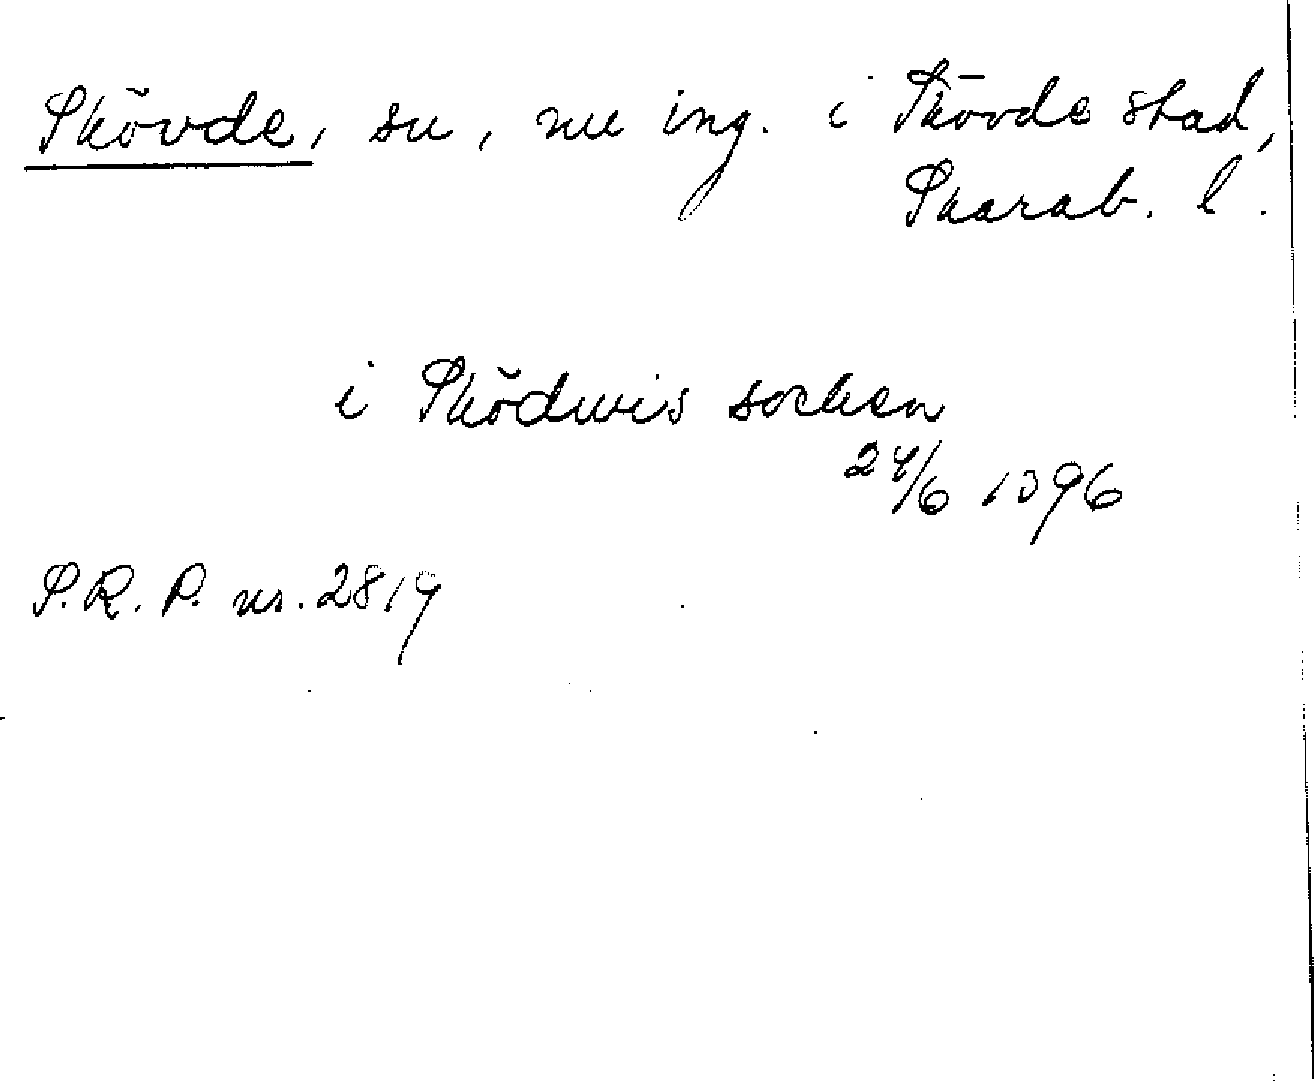 Skövde, sn, nu ing. i Skövde stad,
Skarab. l.
i Sködwis socken
24/6 1396
S.R.P. nr. 2819